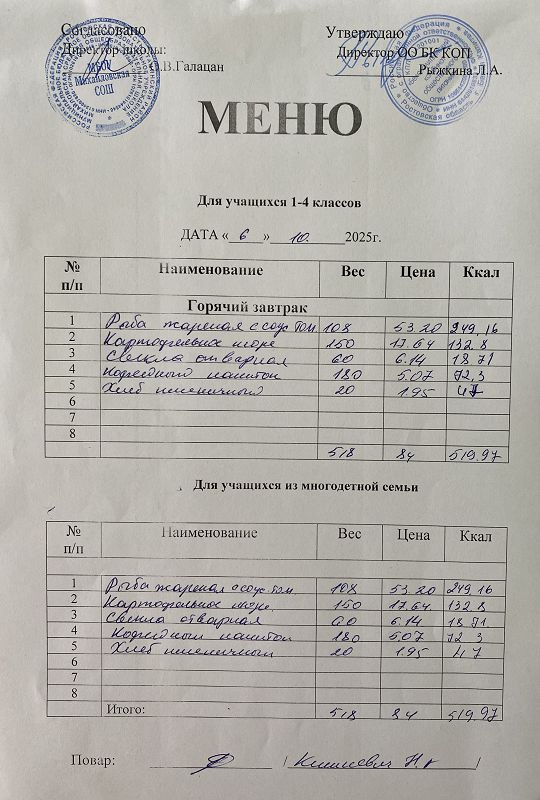 Согласовано Утверждаю
Директор школы: Директор ООО БК КОП
.В.Галацан Рыжкина Л.А.
МБОУ
Михайловская
СОШ
МЕНЮ
Для учащихся 1-4 классов
ДАТА « 6 » 10. 2025г.
№ п/п Наименование Вес Цена Ккал
Горячий завтрак
1 Рыба жареная с соус. том. 108 53.20 249,16
2 Картофельное пюре 150 17.64 132,8
3 Свекла отварная 60 6.14 18.71
4 Кофейный напиток 180 5.07 72,3
5 Хлеб пшеничный 20 1.95 47
6
7
8
518 84 519,97
Для учащихся из многодетной семьи
№ п/п Наименование Вес Цена Ккал
1 Рыба жареная с соус. том. 108 53.20 249,16
2 Картофельное пюре 150 17.64 132,8
3 Свекла отварная 60 6.14 18.71
4 Кофейный напиток 180 5.07 72.3
5 Хлеб пшеничный 20 1.95 47
6
7
8
Итого: 518 84 519,97
Повар: / /